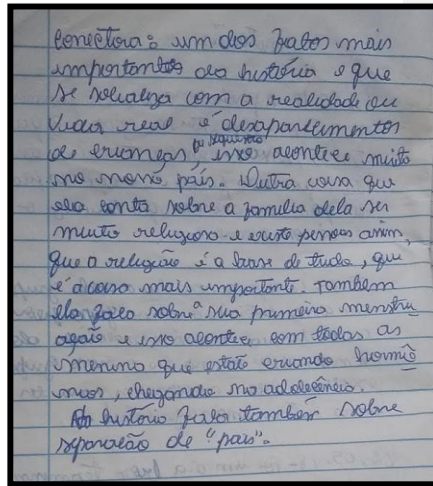 Conectora: um dos fatos mais
importantes da história e que
se relaciona com a realidade ou
vida real é desaparecimentos
de crianças, ou sequestro isso acontece muito
no nosso país. Outra coisa que
ela conta sobre a família dela ser
muito religioso e existe pessoas assim,
que a religião é a base de tudo, que
é a coisa mais importante. Também
ela falo sobre a sua primeira menstru
ação e isso acontece com todas as
menina que estão criando hormô
nios, chegando na adolecência.
A história fala também sobre
separação de "pais".